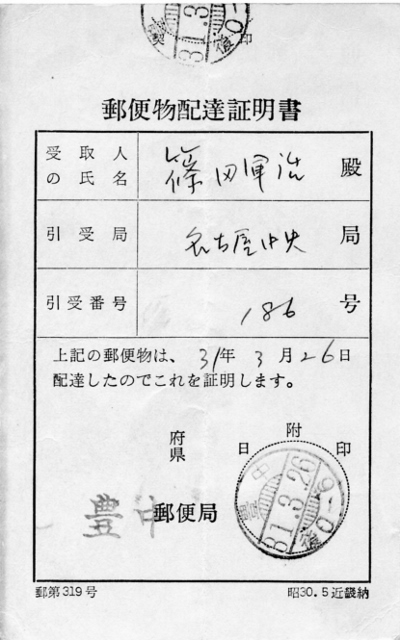 31.3
後0-
印
郵便物配達証明書
受取人
の氏名
篠田軍治 殿
引受局 名古屋中央 局
引受番号 186 号
上記の郵便物は、31年3月26日
配達したのでこれを証明します。
府
県
日附印
豊中 郵便局
31.3.26
後0-6
郵第319号
昭30.5近畿納